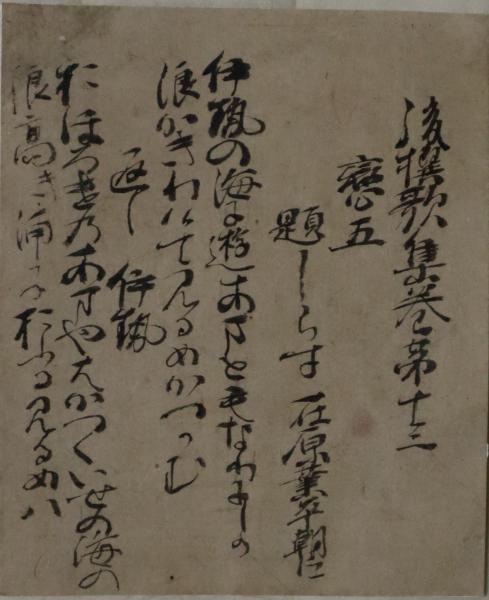 後撰歌集巻第十三
戀五
題しらす 在原業平朝臣
伊勢の海に遊あまともなりにしか
浪かきわけて見るめかつかむ
返し 伊勢
おほろけのあまやはかつくいせの海の
浪高き浦におふる見るめハ